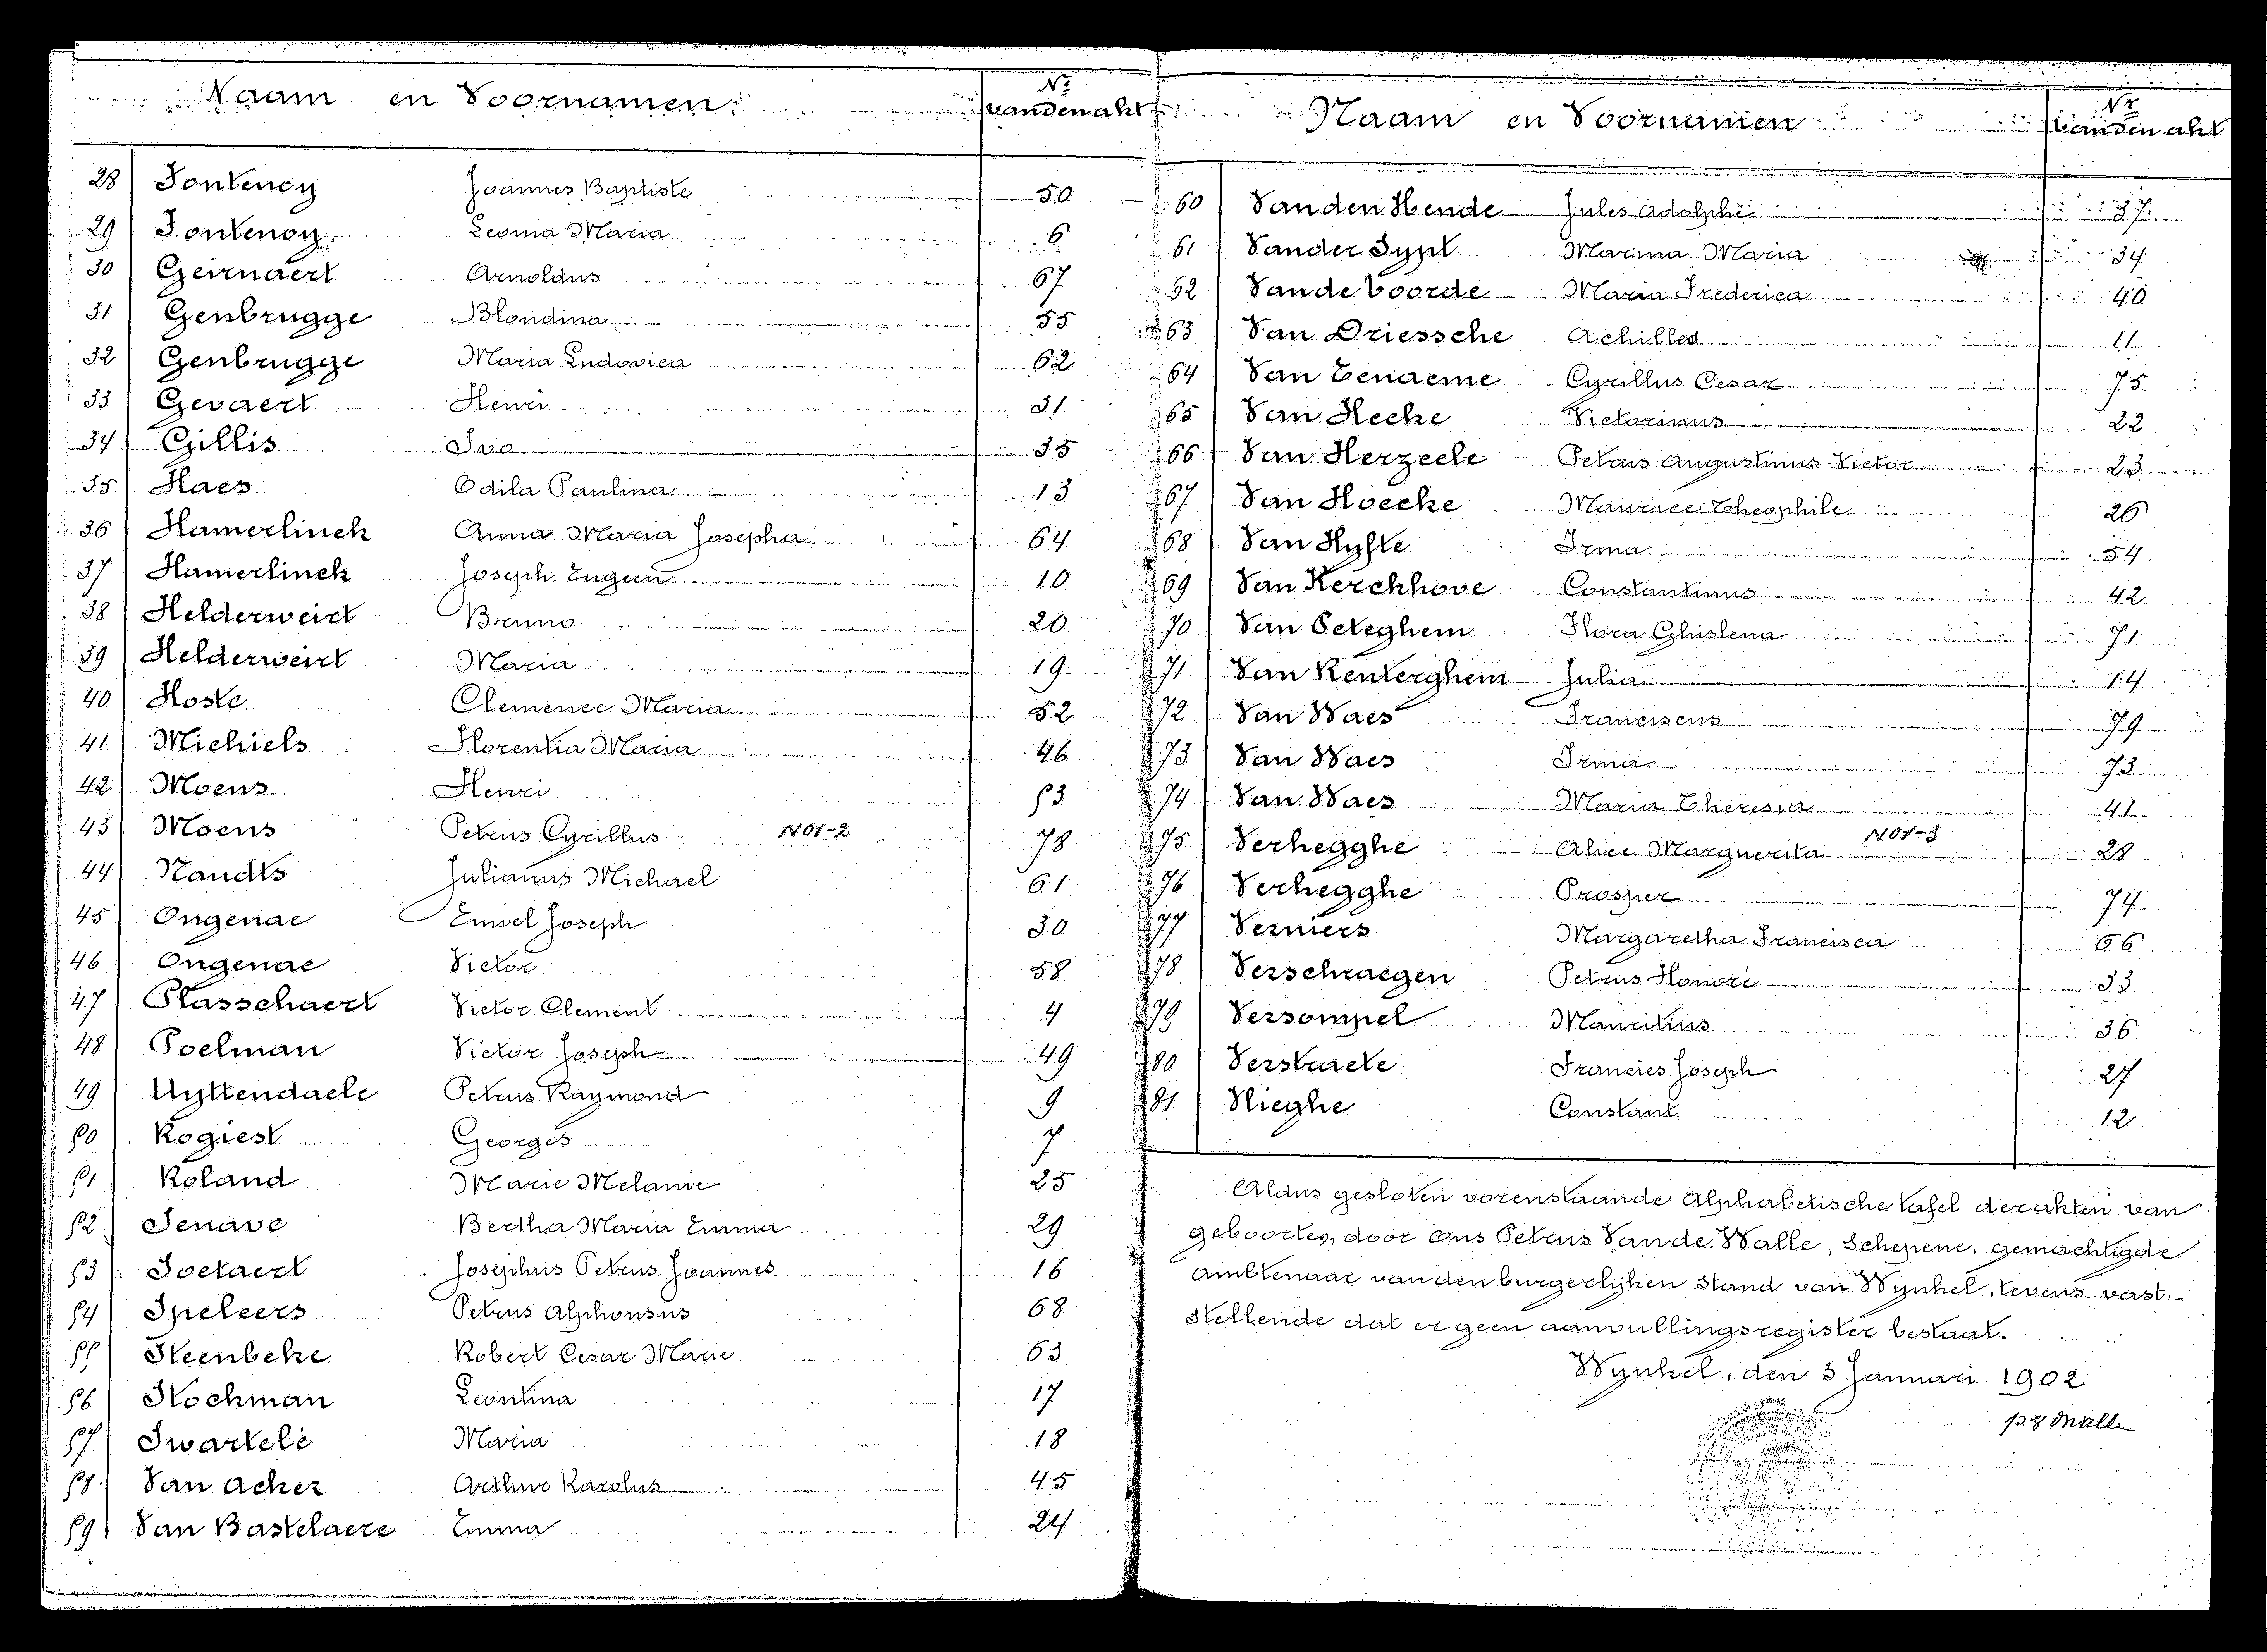 Naam en Voornamen. Nr van den akt
28 Fonteney Joannes Baptiste 50
29 Fonteney Leonia Maria 6
30 Geirnaert Arnoldus 67
31 Genbrugge Blondina 55
32 Genbrugge Maria Ludovica 62
33 Gevaert Henri 31
34 Gillis Ivo 35
35 Haes Odila Paulina 13
36 Hamerlinck Anna Maria Josepha 64
37 Hamerlinck Joseph Eugeen 10
38 Helderweirt Bruno 20
39 Helderweirt Maria 19
40 Hoste Clemence Maria 52
41 Michiels Florentia Maria 46
42 Moens Henri 53
43 Moens Petrus Cyrillus N01-2 78
44 Nandts Julianus Michael 61
45 Ongenae Emiel Joseph 30
46 Ongenae Victor 58
47 Plasschaert Victor Clement 4
48 Poelman Victor Joseph 49
49 Uyttendaele Petrus Raymond 9
50 Rogiest Georges 7
51 Roland Marie Melanie 25
52 Senave Bertha Maria Emma 29
53 Soetaert Josephus Petrus Joannes 16
54 Speleers Petrus Alphonsus 68
55 Steenbeke Robert Cesar Marie 63
56 Stockman Leontina 17
57 Swartelé Maria 18
58 Van Acker Arthur Karolus 45
59 Van Bastelaere Emma 24
Naam en Voornamen Nr van den akt
60 Van den Hende Jules Adolphe 37
61 Vander Sypt Marina Maria 34
62 Van de Voorde Maria Frederica 40
63 Van Driessche Achilles 11
64 Van Eenaeme Cyrillus Cesar 75
65 Van Hecke Victorinus 22
66 Van Herzeele Petrus Augustinus Victor 23
67 Van Hoecke Maurice Theophile 26
68 Van Hyfte Irma 54
69 Van Kerckhove Constantinus 42
70 Van Peteghem Flora Ghislena 71
71 Van Renterghem Julia 14
72 Van Waes Franciscus 79
73 Van Waes Irma 73
74 Van Waes Maria Theresia 41
75 Verhegghe Alice Marguerita N01-3 28
76 Verhegghe Prosper 74
77 Verniers Margaretha Francisca 66
78 Verschraegen Petrus Honoré 33
79 Versompel Mauritius 36
80 Verstraete Francies Joseph 27
81 Vlieghe Constant 12
Aldus gesloten vorenstaande Alphabetische tafel der akten van
geboorten, door ons Petrus Van de Walle, Schepene, gemachtigde
Ambtenaar van den burgerlijken Stand van Wynkel, tevens vast-
stellende dat er geen aanvullingsregister bestaat.
Wynkel, den 3 Januari 1902